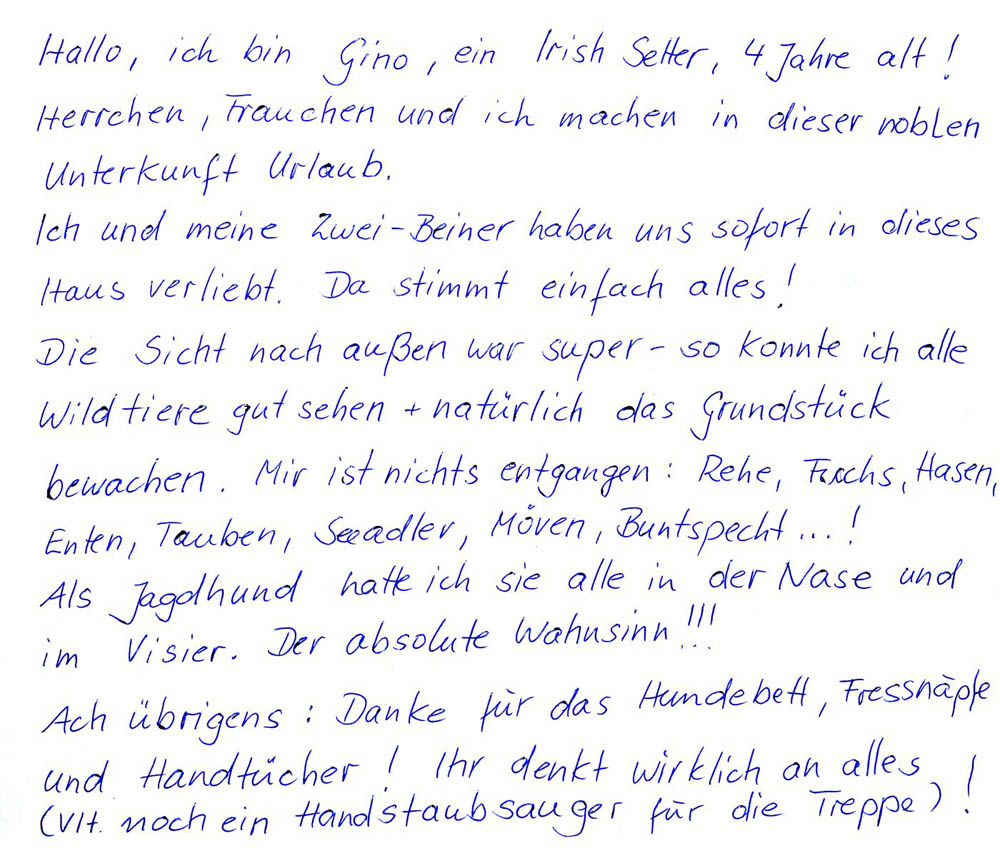 Hallo, ich bin Gino, ein Irish Setter, 4 Jahre alt!
Herrchen, Frauchen und ich machen in dieser noblen
Unterkunft Urlaub.
Ich und meine Zwei-Beiner haben uns sofort in dieses
Haus verliebt. Da stimmt einfach alles!
Die Sicht nach außen war super - so konnte ich alle
Wildtiere gut sehen + natürlich das Grundstück
bewachen. Mir ist nichts entgangen: Rehe, Fuchs, Hasen,
Enten, Tauben, Seeadler, Möven, Buntspecht...!
Als Jagdhund hatte ich sie alle in der Nase und
im Visier. Der absolute Wahnsinn!!!
Ach übrigens: Danke für das Hundebett, Fressnäpfe
und Handtücher! Ihr denkt wirklich an alles
(Vlt. noch ein Handstaubsauger für die Treppe)!